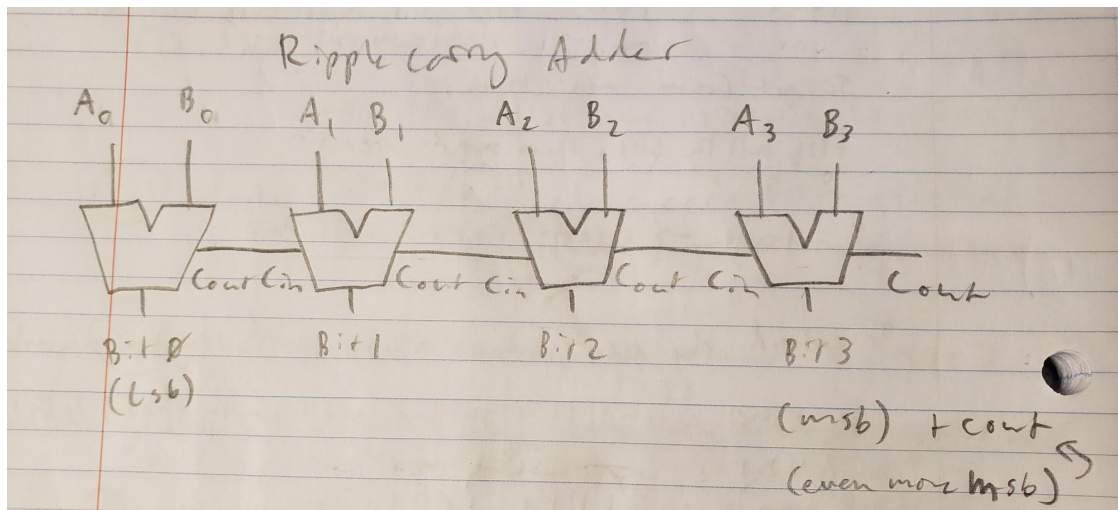 Ripple carry Adder
A₀ B₀ A₁ B₁ A₂ B₂ A₃ B₃
Cout Cin Cout Cin Cout Cin Cout
Bit 0 Bit 1 Bit 2 Bit 3
(lsb)
(msb) + cout
(even more msb)